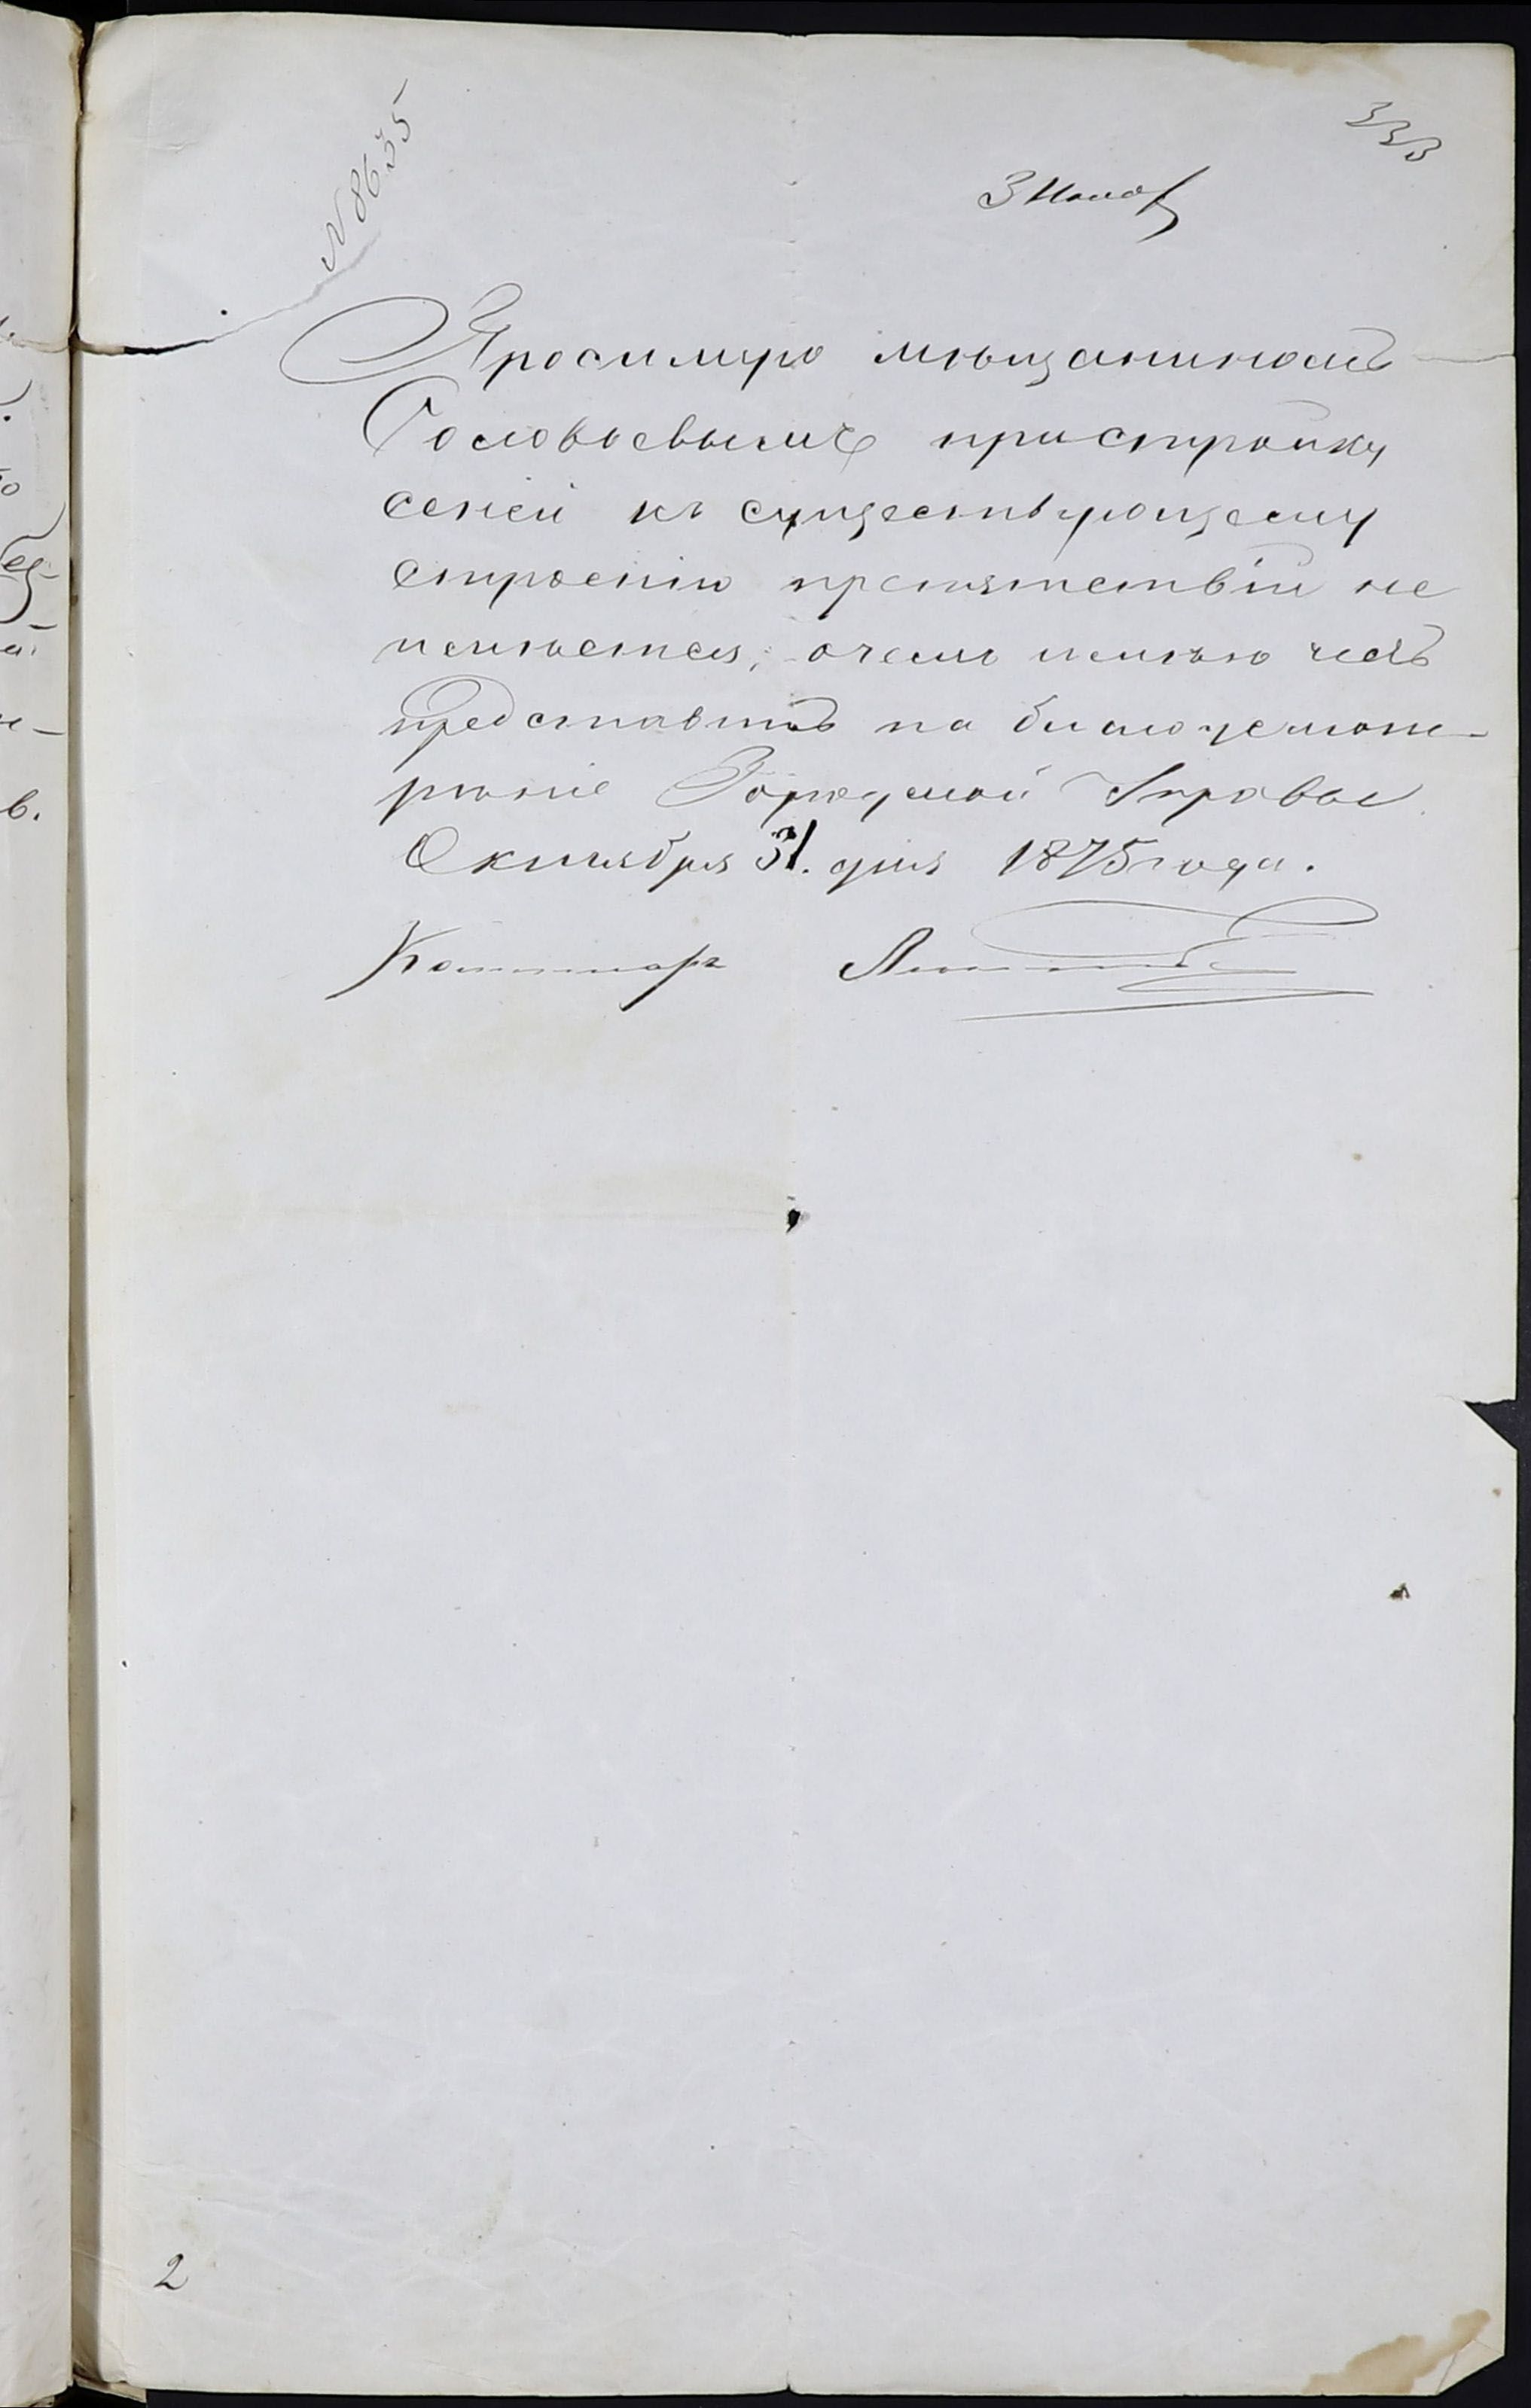 333
N 8635
3 Нояб
Просимую мѣщаниномъ
Соловьевымъ пристройку
сеней къ существующему
строенію препятствій не
имѣется, о чемъ имѣю честь
представить на благоусмот-
рѣніе Городской Управы
Октября 31. дня 1875 года.
2